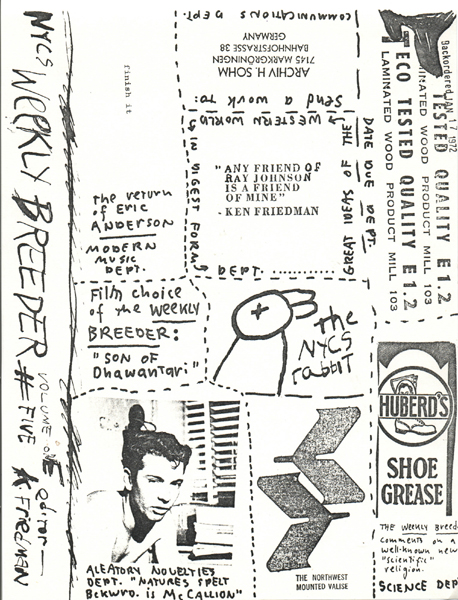 NYCS WEEKLY BREEDER
VOLUME ONE # FIVE
EDITOR KFRIEDMAN
finish it
the return
of ERIC
ANDERSON
MODERN
MUSIC
DEPT.
FILM CHOICE
of the WEEKLY
BREEDER:
"SON OF
Dhawantari"
COMMUNICATIONS DEPT.
send a work to:
ARCHIV H. SOHM
7145 MARKGRÖNINGEN
BAHNHOFSTRASSE 38
GERMANY
DATE DUE DEPT.
GREAT IDEAS OF THE
WESTERN WORLD
IN DIGEST FORM
DEPT. ............
"ANY FRIEND OF
RAY JOHNSON
IS A FRIEND
OF MINE"
- KEN FRIEDMAN
the
NYCS
rabbit
backordered JAN 17 1972
TESTED QUALITY E 1.2
INATED WOOD PRODUCT MILL 103
TECO TESTED QUALITY E 1.2
LAMINATED WOOD PRODUCT MILL 103
HUBERD'S
SHOE
GREASE
THE WEEKLY Breed
comments on a
well-known new
"scientific"
religion.
SCIENCE DEP
ALEATORY NOVELTIES
DEPT. "NATURES SPELT
BCKWRD. is McCALLION"
THE NORTHWEST
MOUNTED VALISE